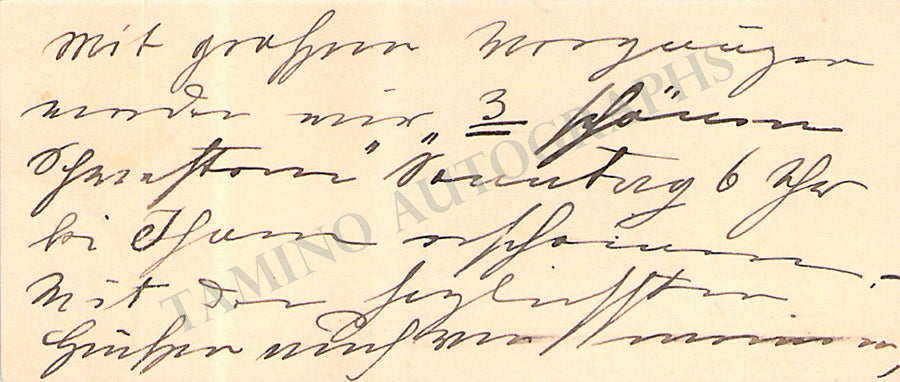 Mit großem Vergnügen
werden wir „3 schönen
Schwestern" Sonntag 6 Uhr
bei Ihnen erscheinen. –
Mit den herzlichsten
Grüßen auch von meinen,
TAMINO AUTOGRAPHS